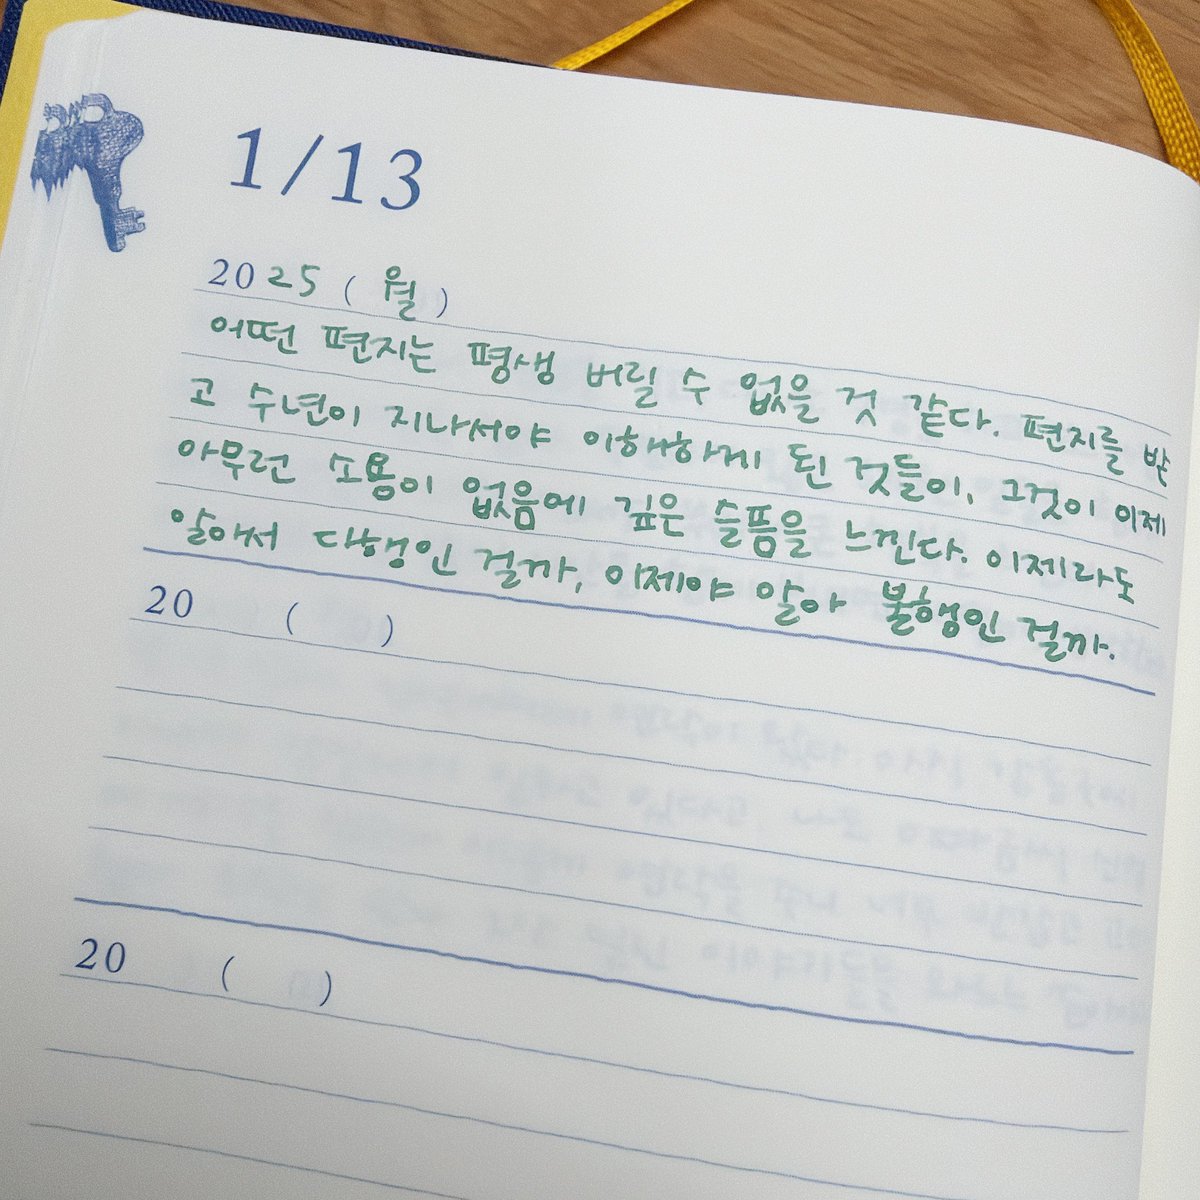 1/13
2025 ( 월 )
어떤 편지는 평생 버릴 수 없을 것 같다. 편지를 받
고 수년이 지나서야 이해하게 된 것들이, 그것이 이제
아무런 소용이 없음에 깊은 슬픔을 느낀다. 이제라도
알아서 다행인 걸까, 이제야 알아 불행인 걸까.
20 ( )
20 ( )